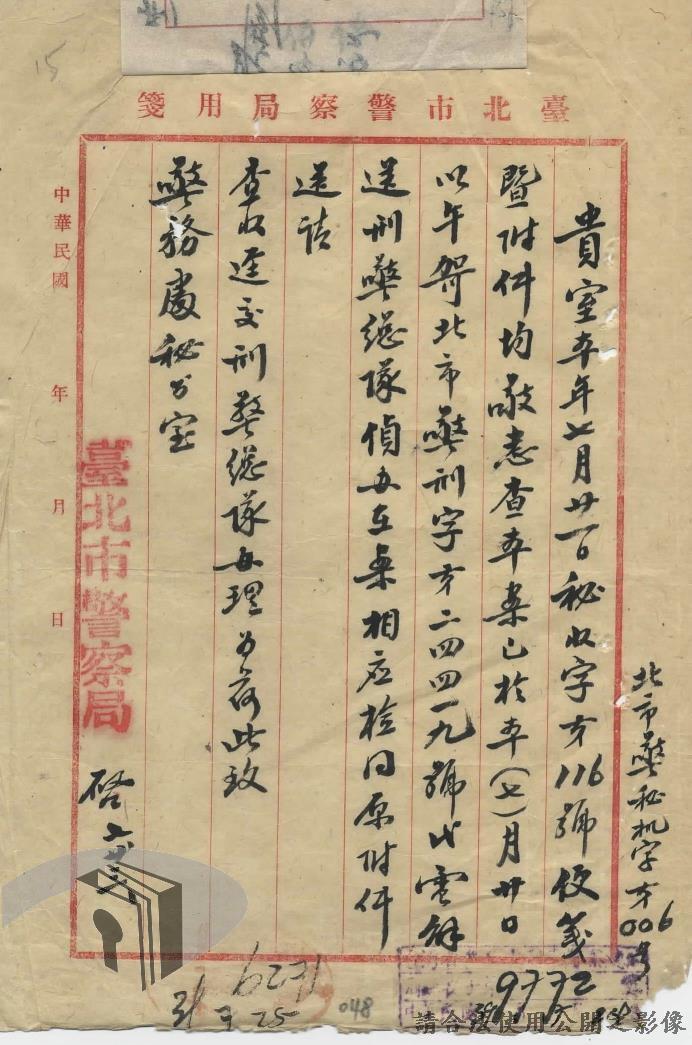 臺北市警察局用箋
北市警秘机字第006号
貴室本年七月廿一日秘收字第116號便箋
暨附件均敬悉查本案已於本(七)月廿日
以午 北市警刑字第二四四一九號代電解
送刑警總隊偵办在案相应檢同原附件
送請
查收逕交刑警總隊办理为荷此致
警務處秘书室
臺北市警察局
啓 七
中華民國 年 月 日
15
9772
6271
048
請合法使用公開之影像